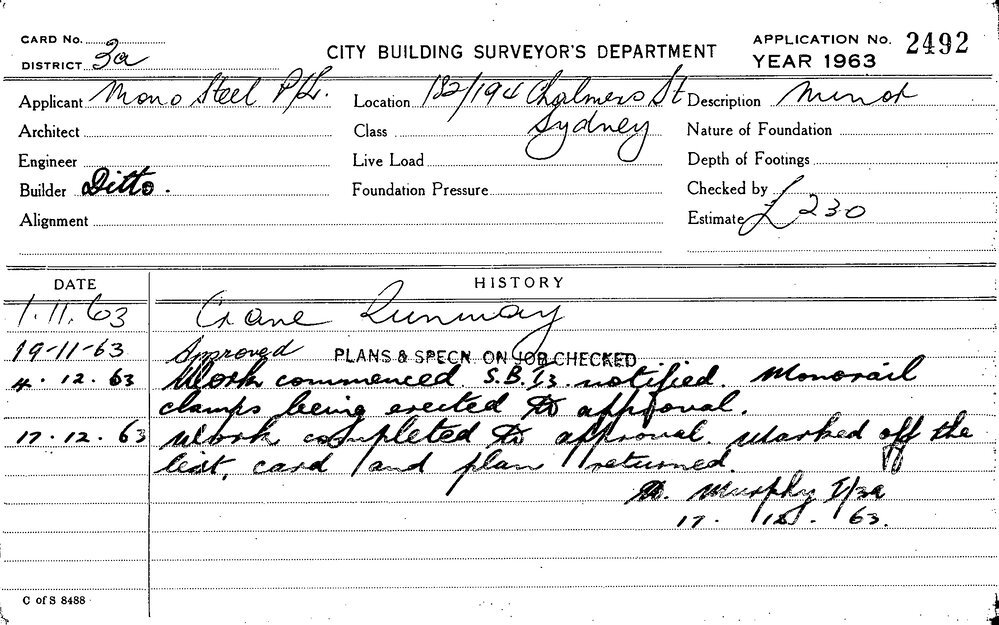 CARD No.
DISTRICT 3a
CITY BUILDING SURVEYOR'S DEPARTMENT
APPLICATION No. 2492
YEAR 1963
Applicant Mono Steel P/L. Location 182/194 Chalmers St Description Minor
Architect Class Sydney Nature of Foundation
Engineer Live Load Depth of Footings
Builder Ditto. Foundation Pressure Checked by
Alignment Estimate £230
DATE HISTORY
1.11.63 Crane Runway
19-11-63 Approved PLANS & SPECN. ON JOB CHECKED
4.12.63 Work commenced. S.B.I. notified. Monorail
clamps being erected to approval.
17.12.63 Work completed to approval. Marked off the
list, card and plan returned.
Murphy I/3a
17.12.63.
C of S 8488